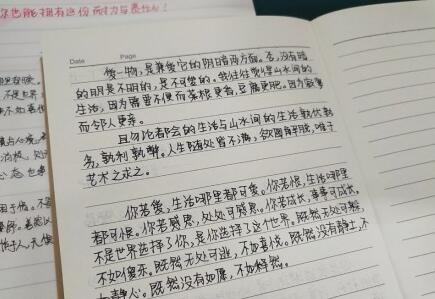 你也能拥有这份耐力与责任心!
Date Page
傻一物,是兼爱它的阴暗两方面。否,没有暗
的明是不明的,是不可爱的。我往往觉得山水间的
生活,因为需要不便而菜根更香,豆腐更肥。因为寂寥
而邻人更亲。
且勿论都会的生活与山水间的生活孰优孰
劣,孰利孰弊。人生随处皆不满,欲图解脱,唯于
艺术之求之。
你若爱,生活哪里都可爱。你若恨,生活哪里
都可恨。你若感恩,处处可感恩。你若成长,事事可成长。
不是世界选择了你,是你选择了这个世界。既然无处可躲,
不如傻乐。既然无处可逃,不如喜悦。既然没有静土,不
如静心。既然没有如愿,不如释然。